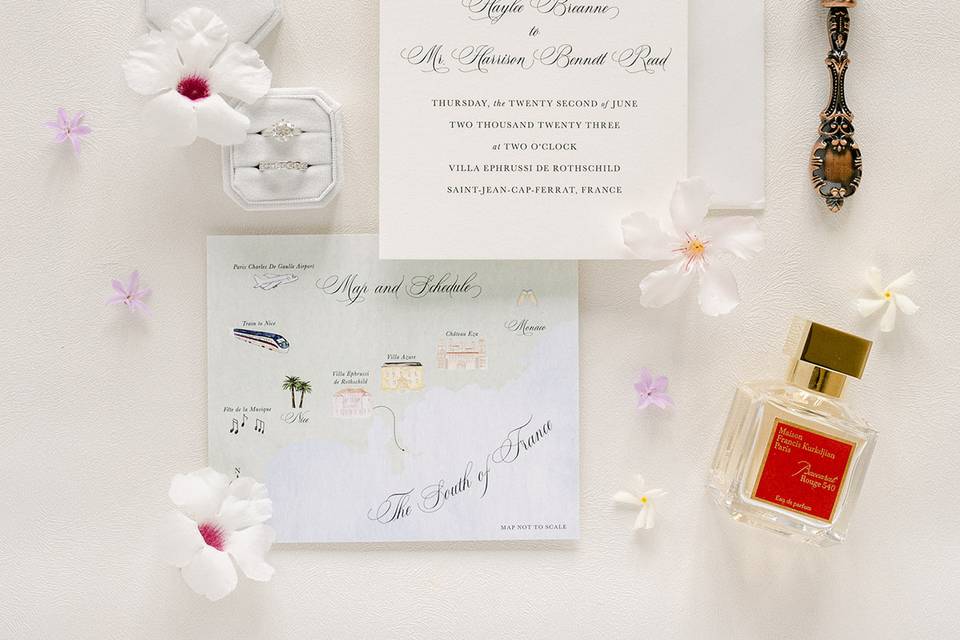 Haylee Breanne
to
Mr. Harrison Bennett Read
THURSDAY, the TWENTY SECOND of JUNE
TWO THOUSAND TWENTY THREE
at TWO O'CLOCK
VILLA EPHRUSSI DE ROTHSCHILD
SAINT-JEAN-CAP-FERRAT, FRANCE
Paris Charles De Gaulle Airport
Map and Schedule
Monaco
Train to Nice
Château Eza
Villa Azure
Villa Ephrussi
de Rothschild
Fête de la Musique
Nice
N
The South of France
MAP NOT TO SCALE
Maison
Francis Kurkdjian
Paris
Baccarat
Rouge 540
Eau de parfum